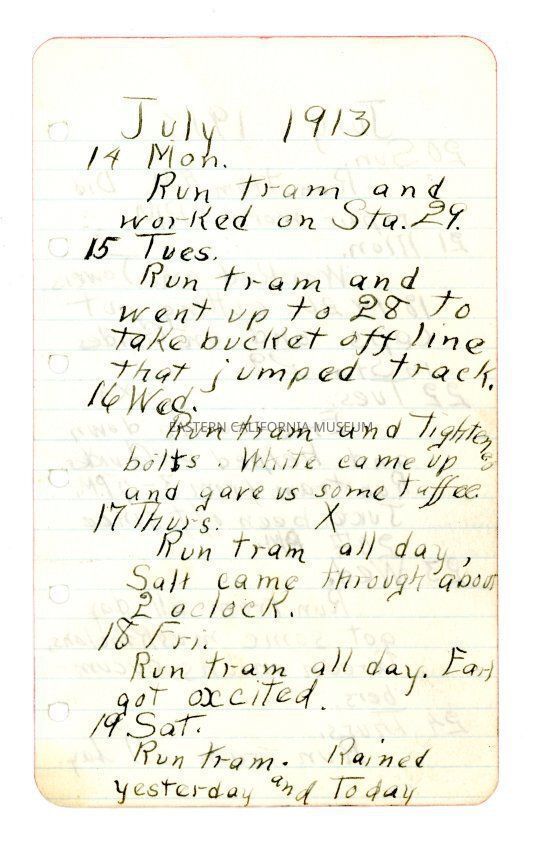 July 1913
14 Mon.
Run tram and
worked on Sta. 29.
15 Tues.
Run tram and
went up to 28 to
take bucket off line
that jumped track.
16 Wed.
EASTERN CALIFORNIA MUSEUM
Run tram and Tighten
bolts. White came up
and gave us some Tuffee.
17 Thurs. X
Run tram all day,
Salt came through about
2 oclock.
18 Fri.
Run tram all day. Earl
got oxcited.
19 Sat.
Run tram. Rained
yesterday and Today